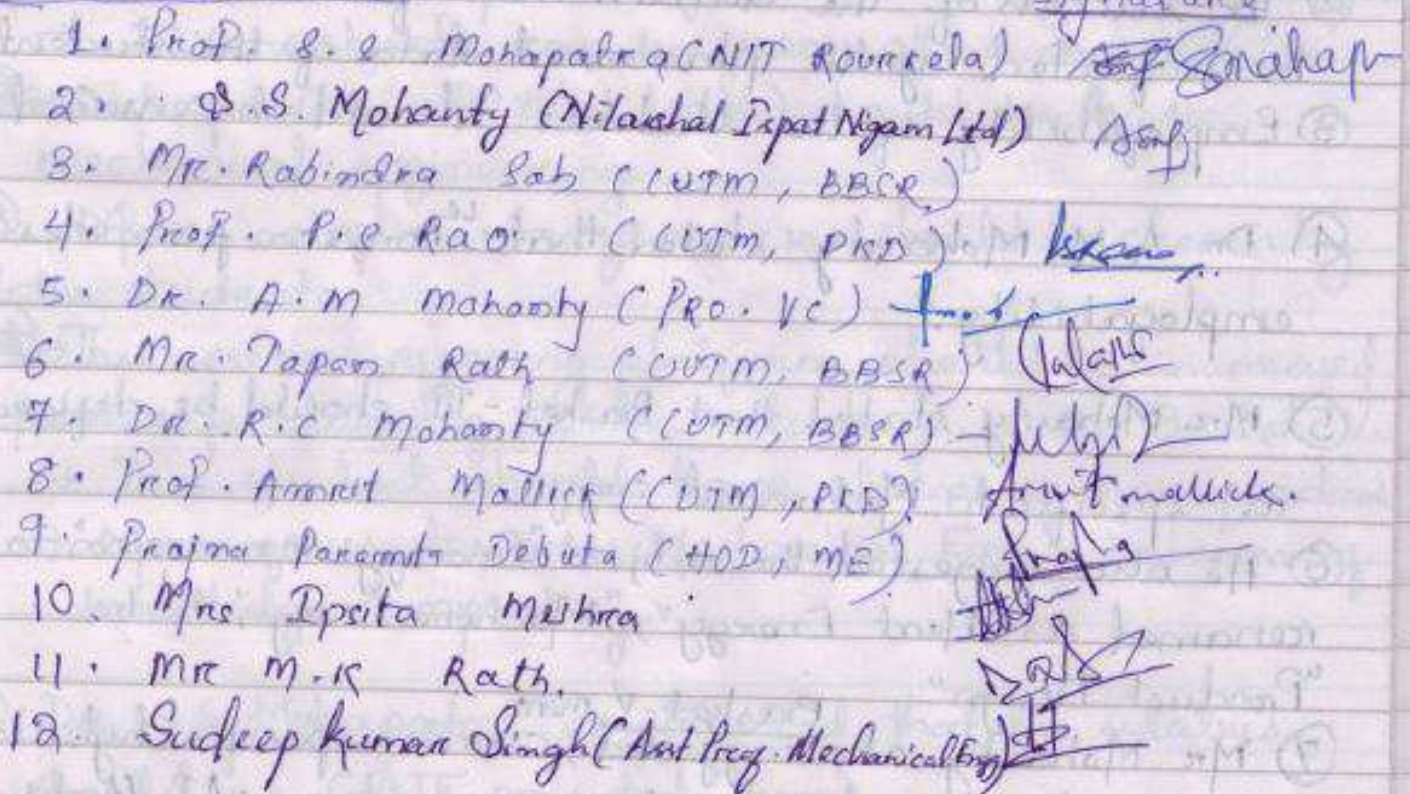 Signature
1. Prof. S. S Mohapatra (NIT Rourkela)
2. S.S. Mohanty (Nilachal Ispat Nigam Ltd)
3. Mr. Rabindra Sah (CUTM, BBSR)
4. Prof. P. S Rao (CUTM, PKD)
5. Dr. A. M Mohanty (PRO. VC)
6. Mr. Tapan Rath (CUTM, BBSR)
7. Dr. R. C Mohanty (CUTM, BBSR) -
8. Prof. Amrit Mallick (CUTM, PKD) Amrit mallick.
9. Prajna Paramita Debata (HOD, ME)
10. Mrs Ipsita Mishra
11. Mr M.K Rath.
12. Sudeep Kumar Singh (Asst Prof. Mechanical Eng)